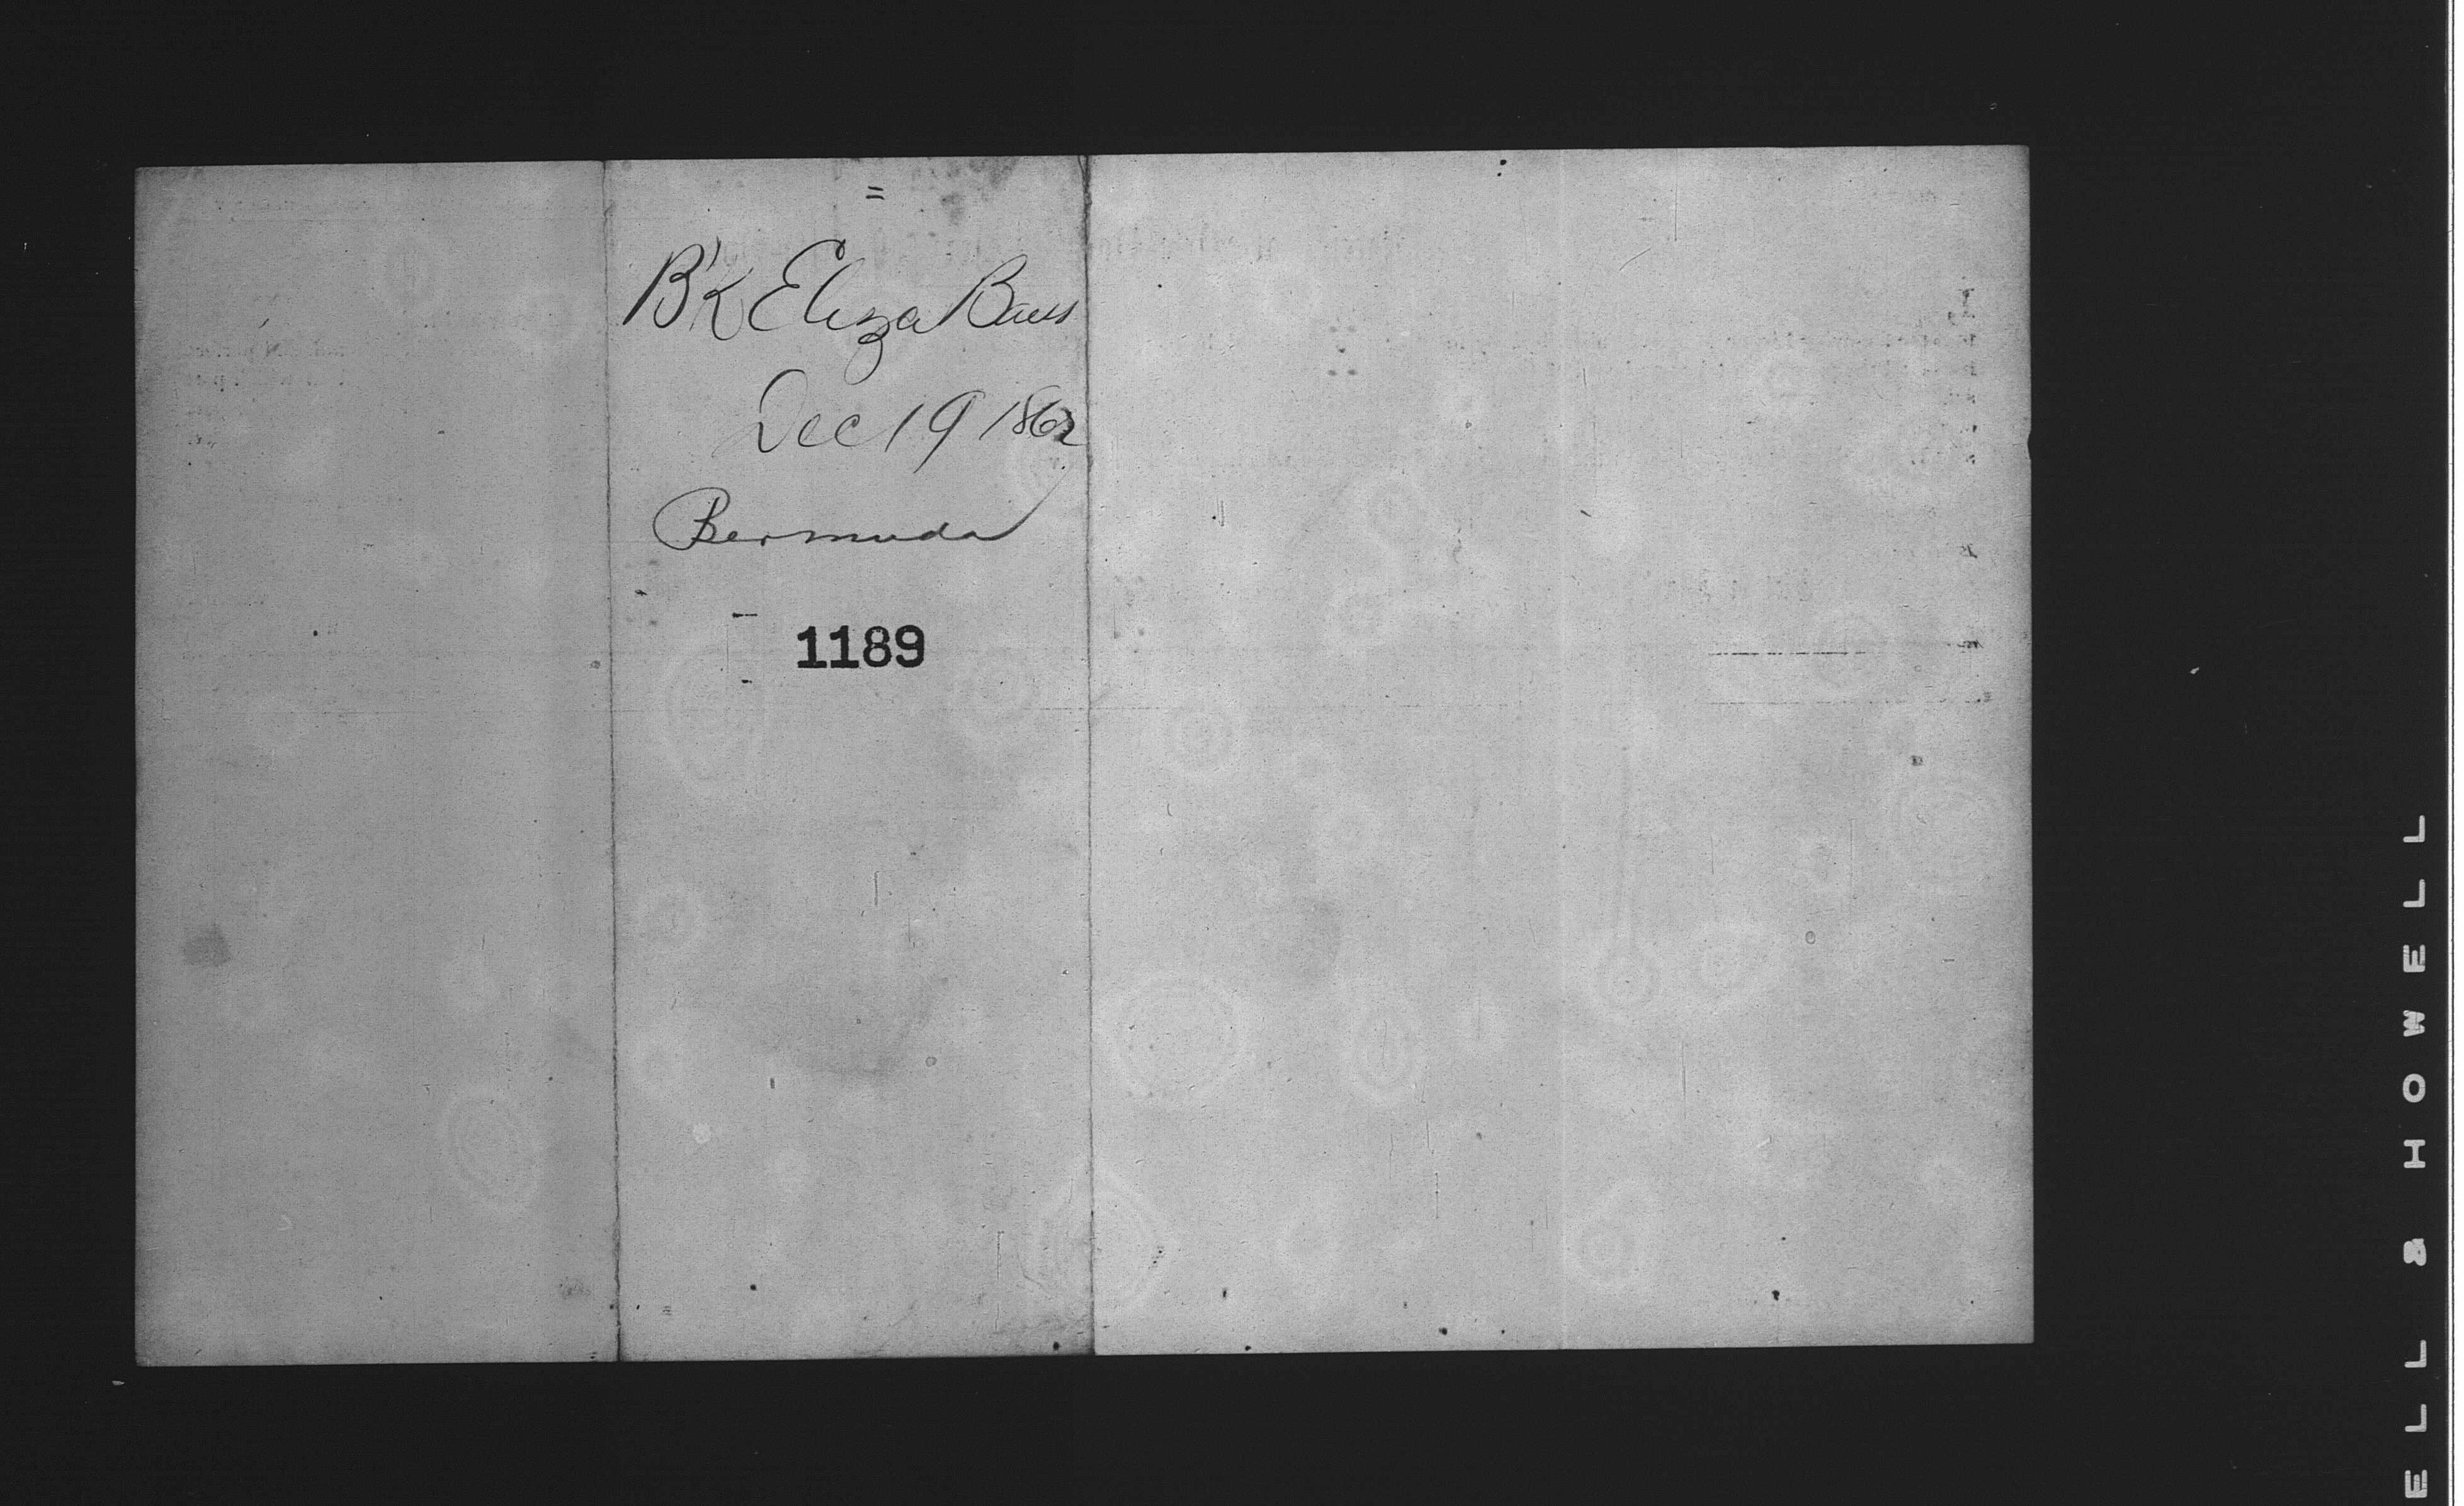 B'k Eliza Bass
Dec 19 1862
Bermuda
1189
ELL & HOWELL